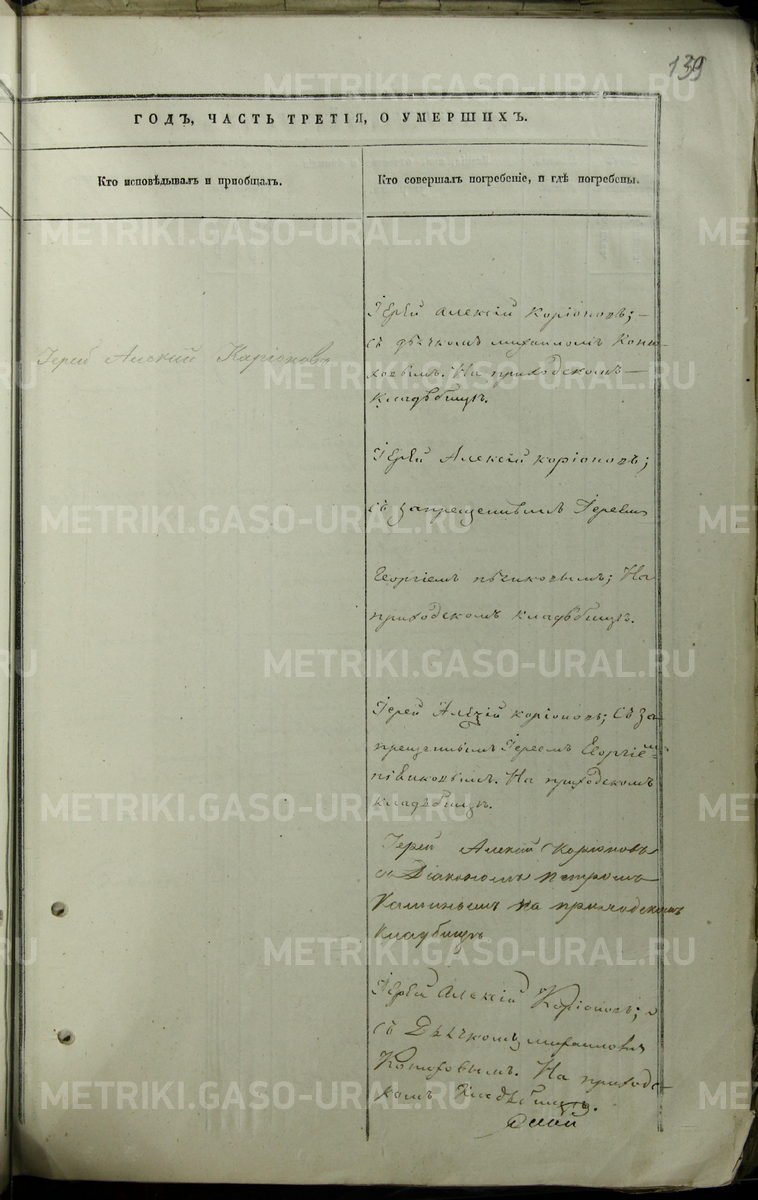 139
ГОДЪ, ЧАСТЬ ТРЕТІЯ, О УМЕРШИХЪ.
Кто исповѣдывалъ и приобщалъ.
Кто совершалъ погребеніе, и гдѣ погребены.
Іерей Алексій Каріоновъ
Іерей Алексій Коріоновъ;
съ дьячкомъ Михаиломъ Коню-
ховымъ. На приходскомъ
кладьбищѣ.
Іерей Алексій Коріоновъ;
съ запрещеннымъ Іереем
Георгіемъ Пѣнковымъ; На
приходскомъ кладьбищѣ.
Іерей Алексій Коріоновъ; Съ за
прещеннымъ Іереемъ Георгіем
На приходскомъ
кладьбищѣ.
Іерей Алексій Коріоновъ
съ Діакономъ Петромъ
на приходскомъ
кладбищѣ
Іерей Алексій Коріоновъ;
съ Дьячкомъ Михаиломъ
На приходс-
комъ Кладьбищѣ.
METRIKI.GASO-URAL.RU